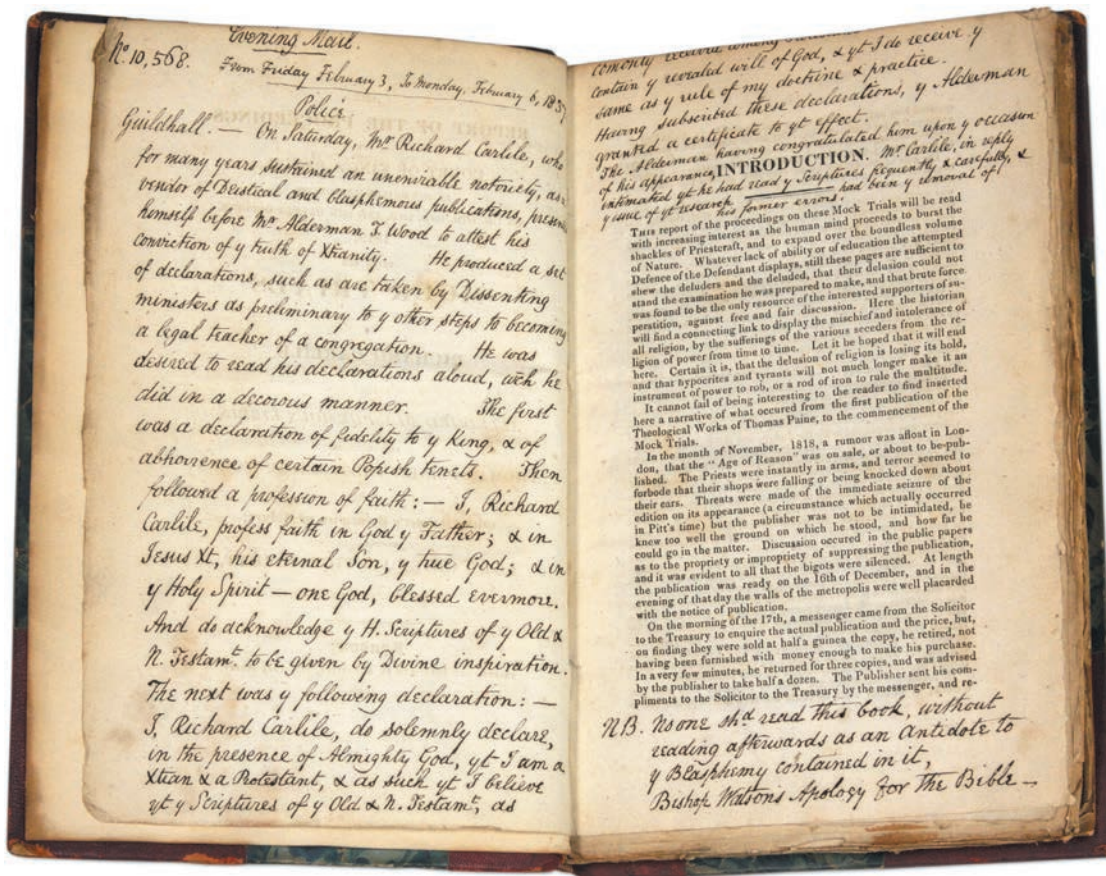 Evening Mail.
No. 10,568.
From Friday February 3, To Monday, February 6, 1837
Police
Guildhall. — On Saturday, Mr Richard Carlile, who
for many years sustained an unenviable notoriety, as a
vendor of Deistical and blasphemous publications, presen
himself before Mr Alderman T. Wood to attest his
conviction of y truth of Xtianity. He produced a set
of declarations, such as are taken by Dissenting
ministers as preliminary to y other steps to becoming
a legal teacher of a congregation. He was
desired to read his declarations aloud, wch he
did in a decorous manner. The first
was a declaration of fidelity to y King, & of
abhorrence of certain Popish tenets. Then
followed a profession of faith: — I, Richard
Carlile, profess faith in God y Father; & in
Jesus Xt, his eternal Son, y true God; & in
y Holy Spirit — one God, blessed evermore.
And do acknowledge y H. Scriptures of y Old &
N. Testamt. to be given by Divine inspiration.
The next was y following declaration: —
I, Richard Carlile, do solemnly declare,
in the presence of Almighty God, yt I am a
Xtian & a Protestant, & as such yt I believe
yt y Scriptures of y Old & N. Testamt, as
comonly received among
contain y revealed will of God, & yt I do receive y
same as y rule of my doctrine & practice.
Having subscribed these declarations, y Alderman
granted a certificate to yt effect.
The Alderman having congratulated him upon y occasion
of his appearance, Mr Carlile, in reply
intimated yt he had read y Scriptures frequently & carefully, &
y issue of yt research had been y removal of
his former errors.
INTRODUCTION.
THIS report of the proceedings on these Mock Trials will be read
with increasing interest as the human mind proceeds to burst the
shackles of Priestcraft, and to expand over the boundless volume
of Nature. Whatever lack of ability or of education the attempted
Defence of the Defendant displays, still these pages are sufficient to
shew the deluders and the deluded, that their delusion could not
stand the examination he was prepared to make, and that brute force
was found to be the only resource of the interested supporters of su-
perstition, against free and fair discussion. Here the historian
will find a connecting link to display the mischief and intolerance of
all religion, by the sufferings of the various seceders from the re-
ligion of power from time to time. Let it be hoped that it will end
here. Certain it is, that the delusion of religion is losing its hold,
and that hypocrites and tyrants will not much longer make it an
instrument of power to rob, or a rod of iron to rule the multitude.
It cannot fail of being interesting to the reader to find inserted
here a narrative of what occured from the first publication of the
Theological Works of Thomas Paine, to the commencement of the
Mock Trials.
In the month of November, 1818, a rumour was afloat in Lon-
don, that the "Age of Reason" was on sale, or about to be pub-
lished. The Priests were instantly in arms, and terror seemed to
forbode that their shops were falling or being knocked down about
their ears. Threats were made of the immediate seizure of the
edition on its appearance (a circumstance which actually occurred
in Pitt's time) but the publisher was not to be intimidated, he
knew too well the ground on which he stood, and how far he
could go in the matter. Discussion occured in the public papers
as to the propriety or impropriety of suppressing the publication,
and it was evident to all that the bigots were silenced. At length
the publication was ready on the 16th of December, and in the
evening of that day the walls of the metropolis were well placarded
with the notice of publication.
On the morning of the 17th, a messenger came from the Solicitor
to the Treasury to enquire the actual publication and the price, but,
on finding they were sold at half a guinea the copy, he retired, not
having been furnished with money enough to make his purchase.
In a very few minutes, he returned for three copies, and was advised
by the publisher to take half a dozen. The Publisher sent his com-
pliments to the Solicitor to the Treasury by the messenger, and re-
N.B. No one shd read this book, without
reading afterwards as an Antidote to
y Blasphemy contained in it,
Bishop Watsons Apology for the Bible —